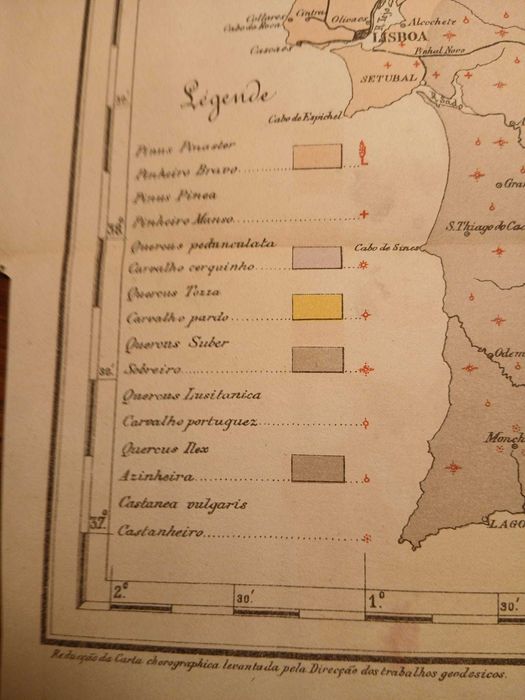 Collares
Cintra
Cabo da Roca
Olivaes
Alcochete
LISBOA
Cascaes
Pinhal Novo
SETUBAL
Sado
Légende
Cabo de Espichel
39.
Pinus Pinaster
Pinheiro Bravo
Pinus Pinea
Pinheiro Manso
38.°
Quercus pedunculata
Carvalho cerquinho
Cabo de Sines
S. Thiago do Cac
Gran
Quercus Tozza
Carvalho pardo
Quercus Suber
Sobreiro
30.'
Odem
Quercus Lusitanica
Carvalho portuguez
Quercus Ilex
Azinheira
Monch
Castanea vulgaris
Castanheiro
37.°
LAGO
2.°
30.'
1.°
30.'
Reducção da Carta chorographica levantada pela Direcção dos trabalhos geodesicos.